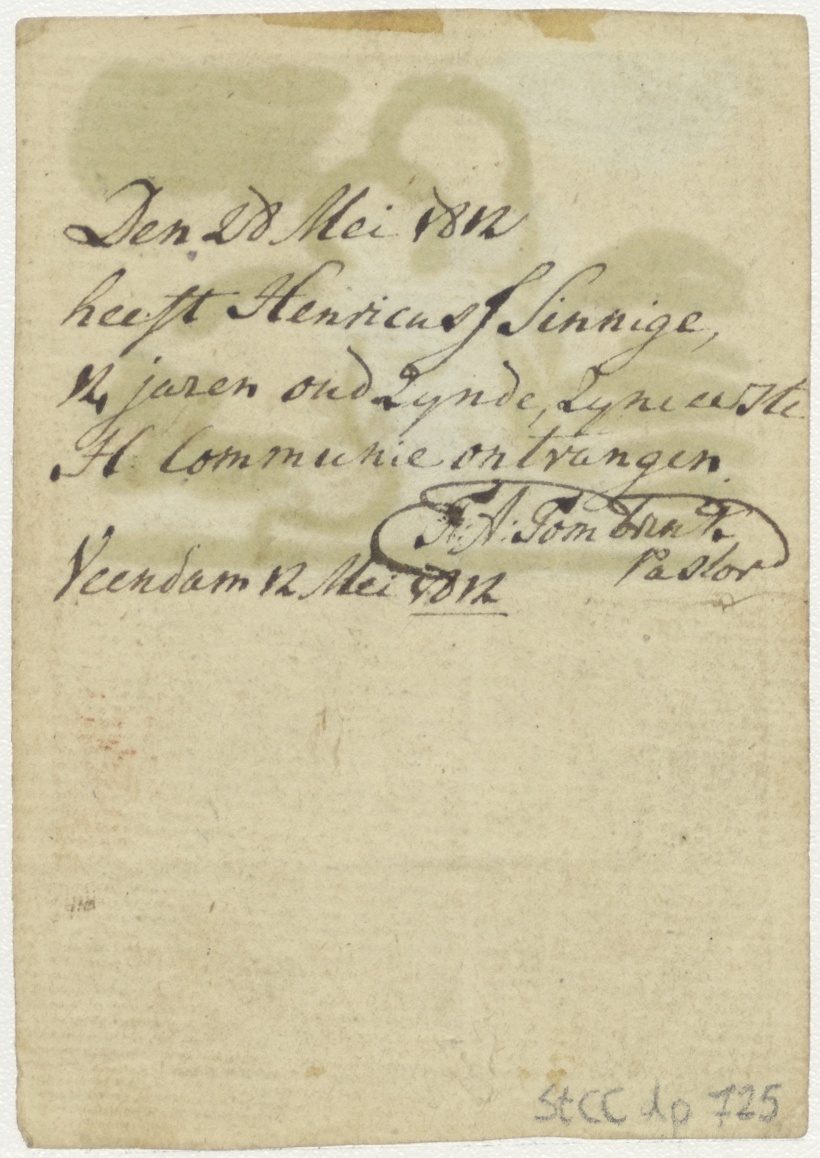 Den 28 Mei 1812
heeft Henricus J Sinnige,
12 jaren oud Zynde, Zyne eerste
H. Communie ontvangen.
F. A. Tombrink
Pastor
Veendam 12 Mei 1812
StCC dp 725